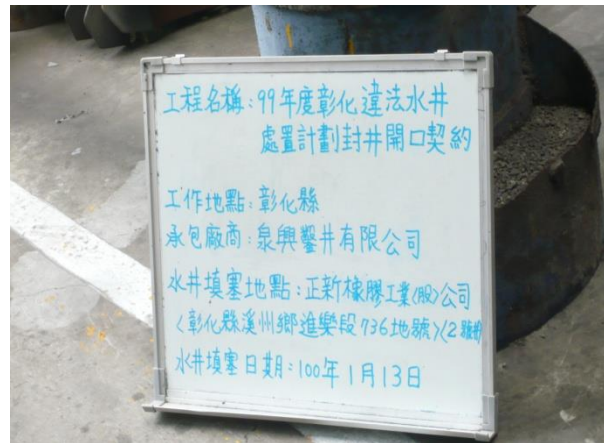 工程名稱:99年度彰化違法水井
處置計劃封井開口契約
工作地點:彰化縣
承包廠商:泉興鑿井有限公司
水井填塞地點:正新橡膠工業(股)公司
(彰化縣溪州鄉進樂段736地號)(2號井)
水井填塞日期:100年1月13日